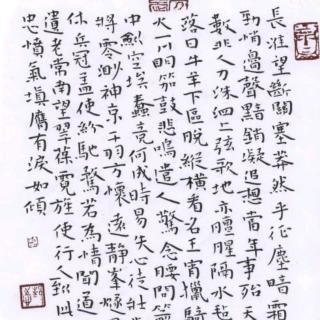 長淮望斷關塞莽然平征塵暗霜
勁悄邊聲黯銷凝追想當年事殆天
數非人力洙泗上弦歌地亦羶腥隔水氈
落日牛羊下區脫縱橫看名王宵獵騎
火一川明笳鼓悲鳴遣人驚念腰間箭
中劍空埃蠹竟何成時易失心徒壯
將零渺神京干羽方懷遠靜峯燧
休兵冠蓋使紛馳騖若為情聞道
遺老常南望翠葆霓旌使行人到此
忠憤氣填膺有淚如傾